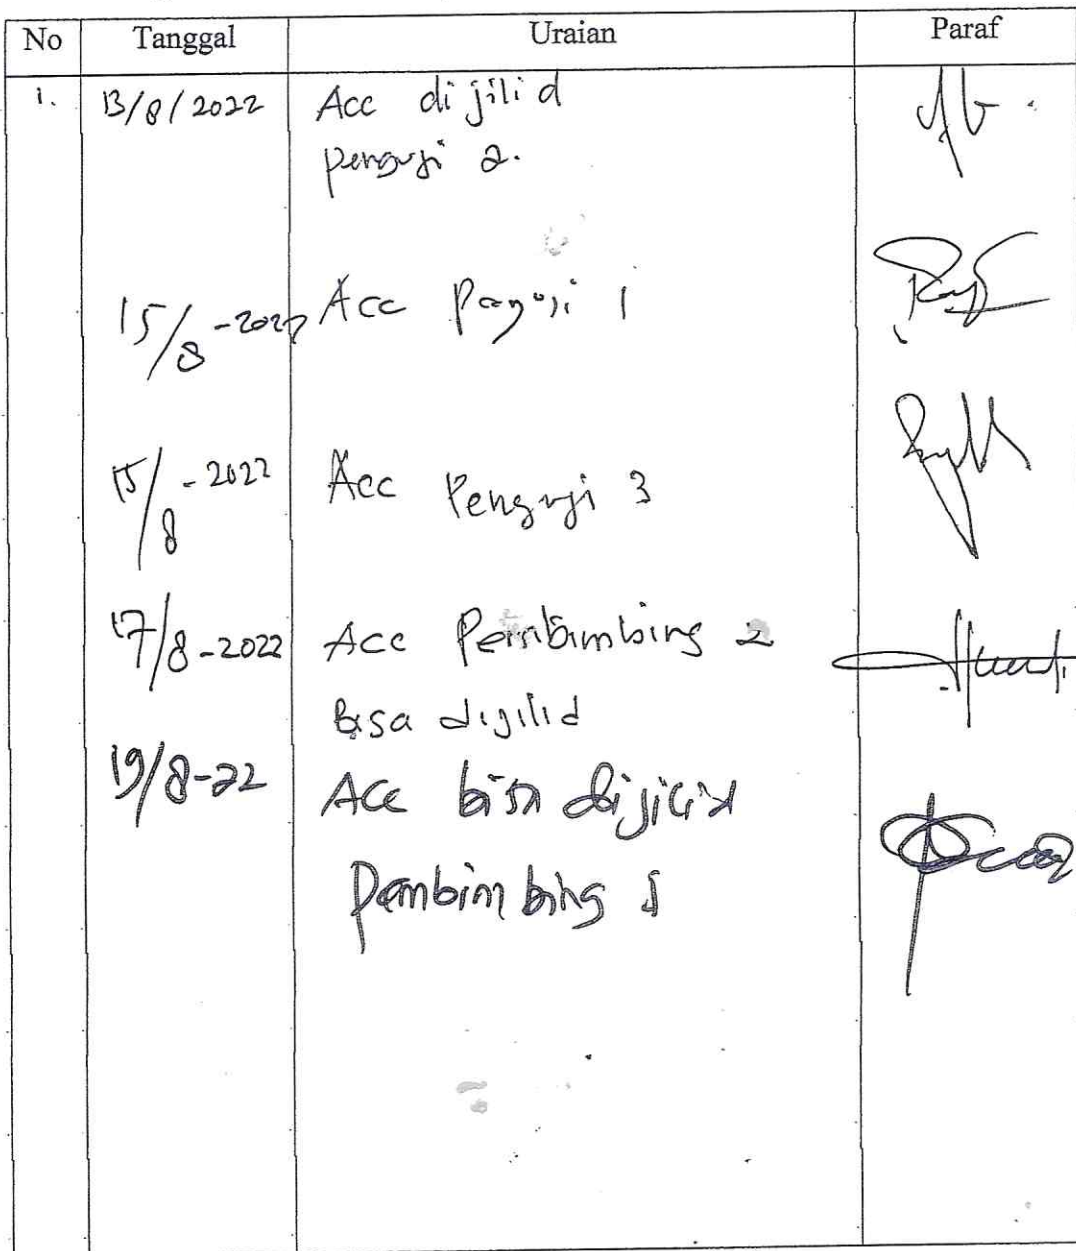 No Tanggal Uraian Paraf
1. 13/8/2022 Acc di jilid
penguji 2.
15/8-2022 Acc Penguji 1
15/8-2022 Acc Penguji 3
17/8-2022 Acc Pembimbing 2
Bisa dijilid
19/8-22 Acc bisa dijilid
Pembimbing 1